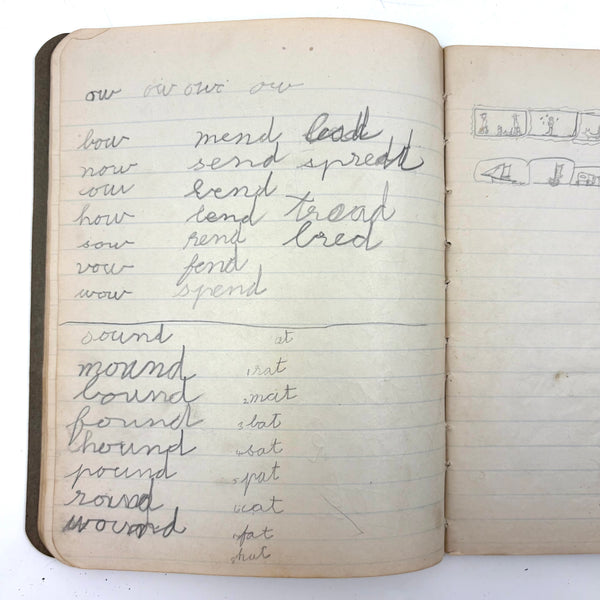 ow ow ow ow
bow mend lead
now send spread
ow bend
how lend tread
sow rend bred
vow fend
wow spend
sound at
mound 1 rat
bound 2 mat
found 3 bat
hound 4 sat
pound 5 pat
round 6 cat
wound 7 fat
8 hat